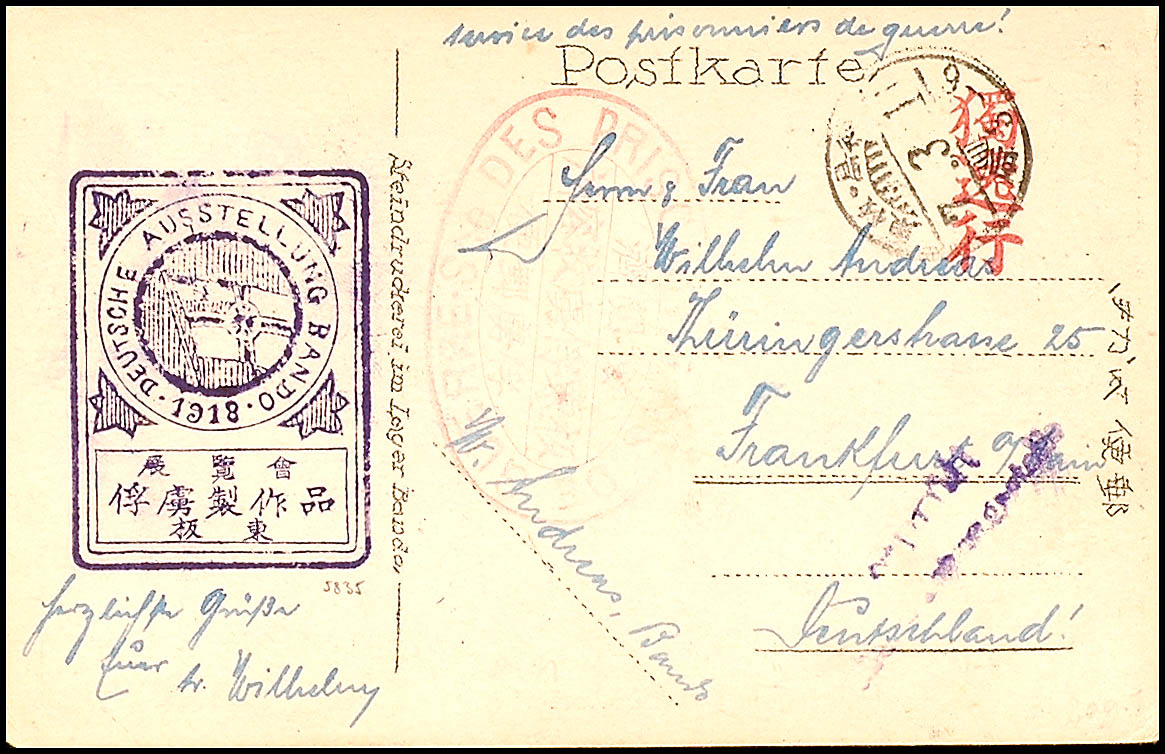 service des prisonniers de guerre!
Postkarte
Herrn & Frau
Wilhelm Andreas
Thüringerstrasse 25
Frankfurt a/Main
Deutschland!
W. Andreas, Bando
Steindruckerei im Lager Bando
DEUTSCHE AUSSTELLUNG BANDO
1918
展覽會
俘虜製作品
板東
5835
herzlichste Grüße
Euer tr. Wilhelm
DES PRIS
行